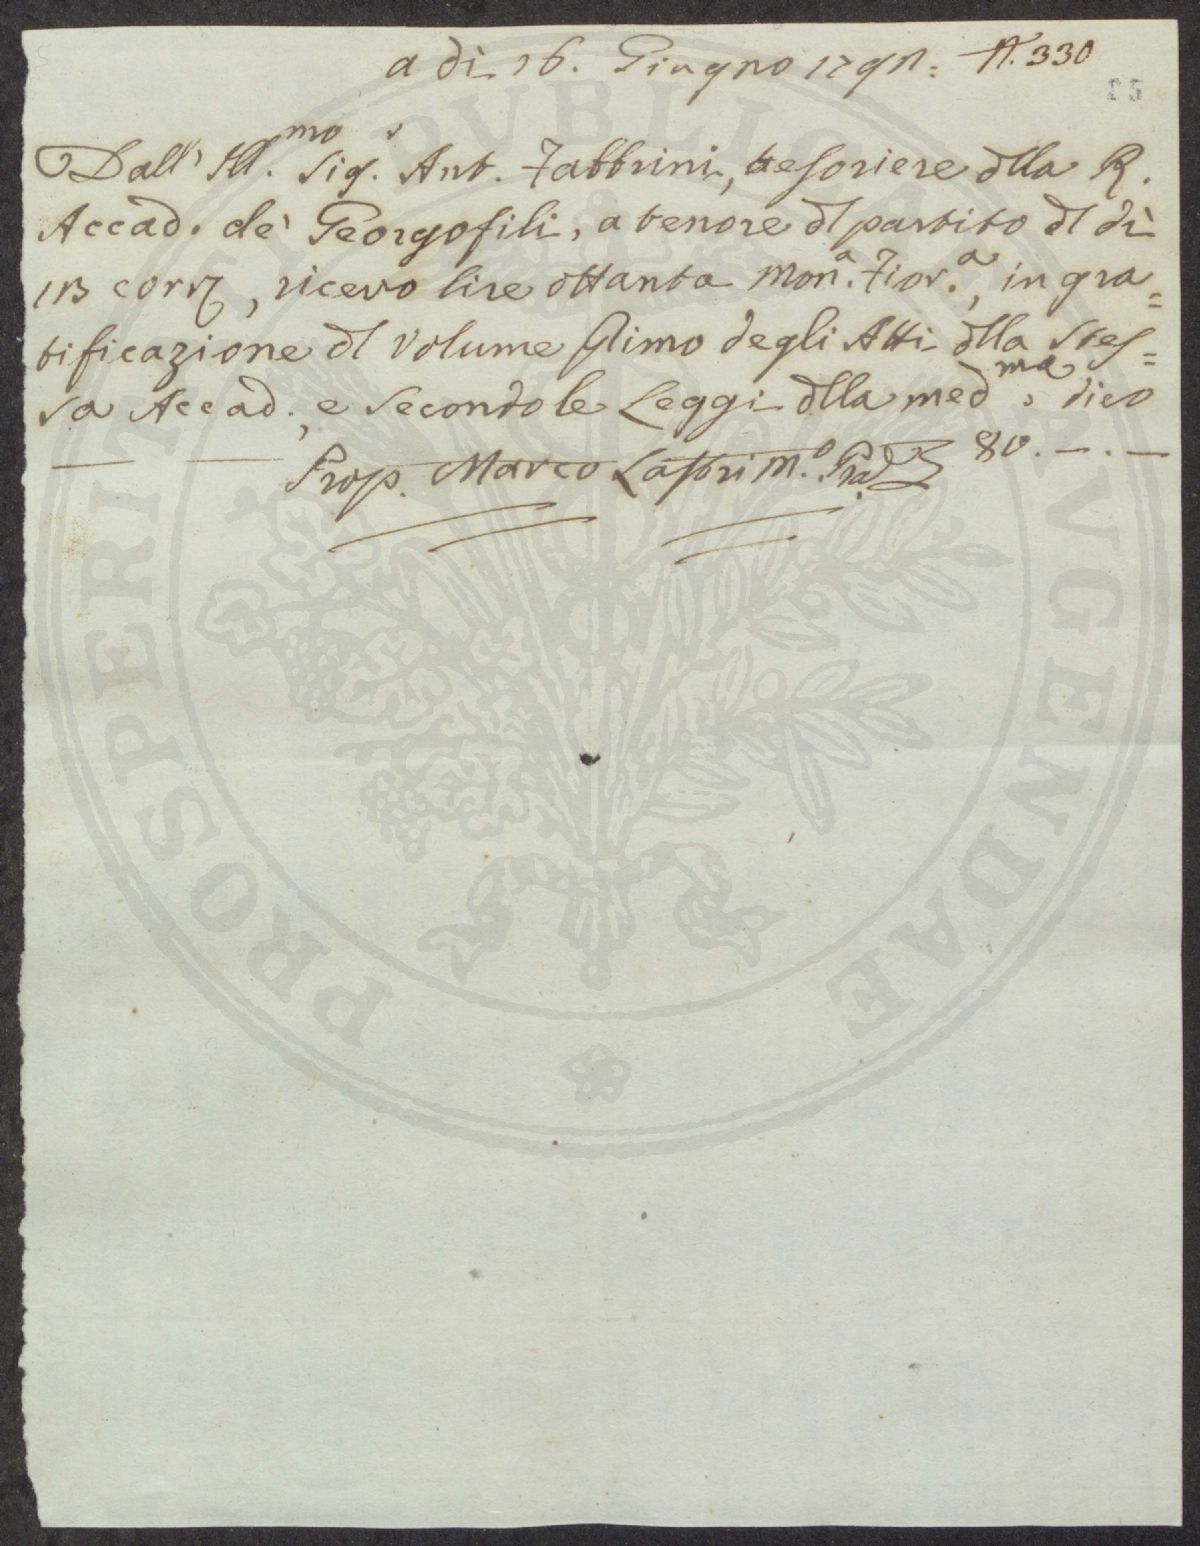 a dì 16. Giugno 1791. N. 330
25
Dall' Ill.mo Sig.r Ant. Fabbrini, tesoriere dlla R.
Accad. de' Georgofili, a tenore dl partito dl dì
15 corr, ricevo lire ottanta Mon.a Fior.a, in gra=
tificazione dl Volume Primo degli Atti dlla stes=
sa Accad., e secondo le Leggi dlla medma, dico
80. — . —
Prop. Marco Lastri M.o Pa.
PROSPERITATI PVBLICAE AVGENDAE